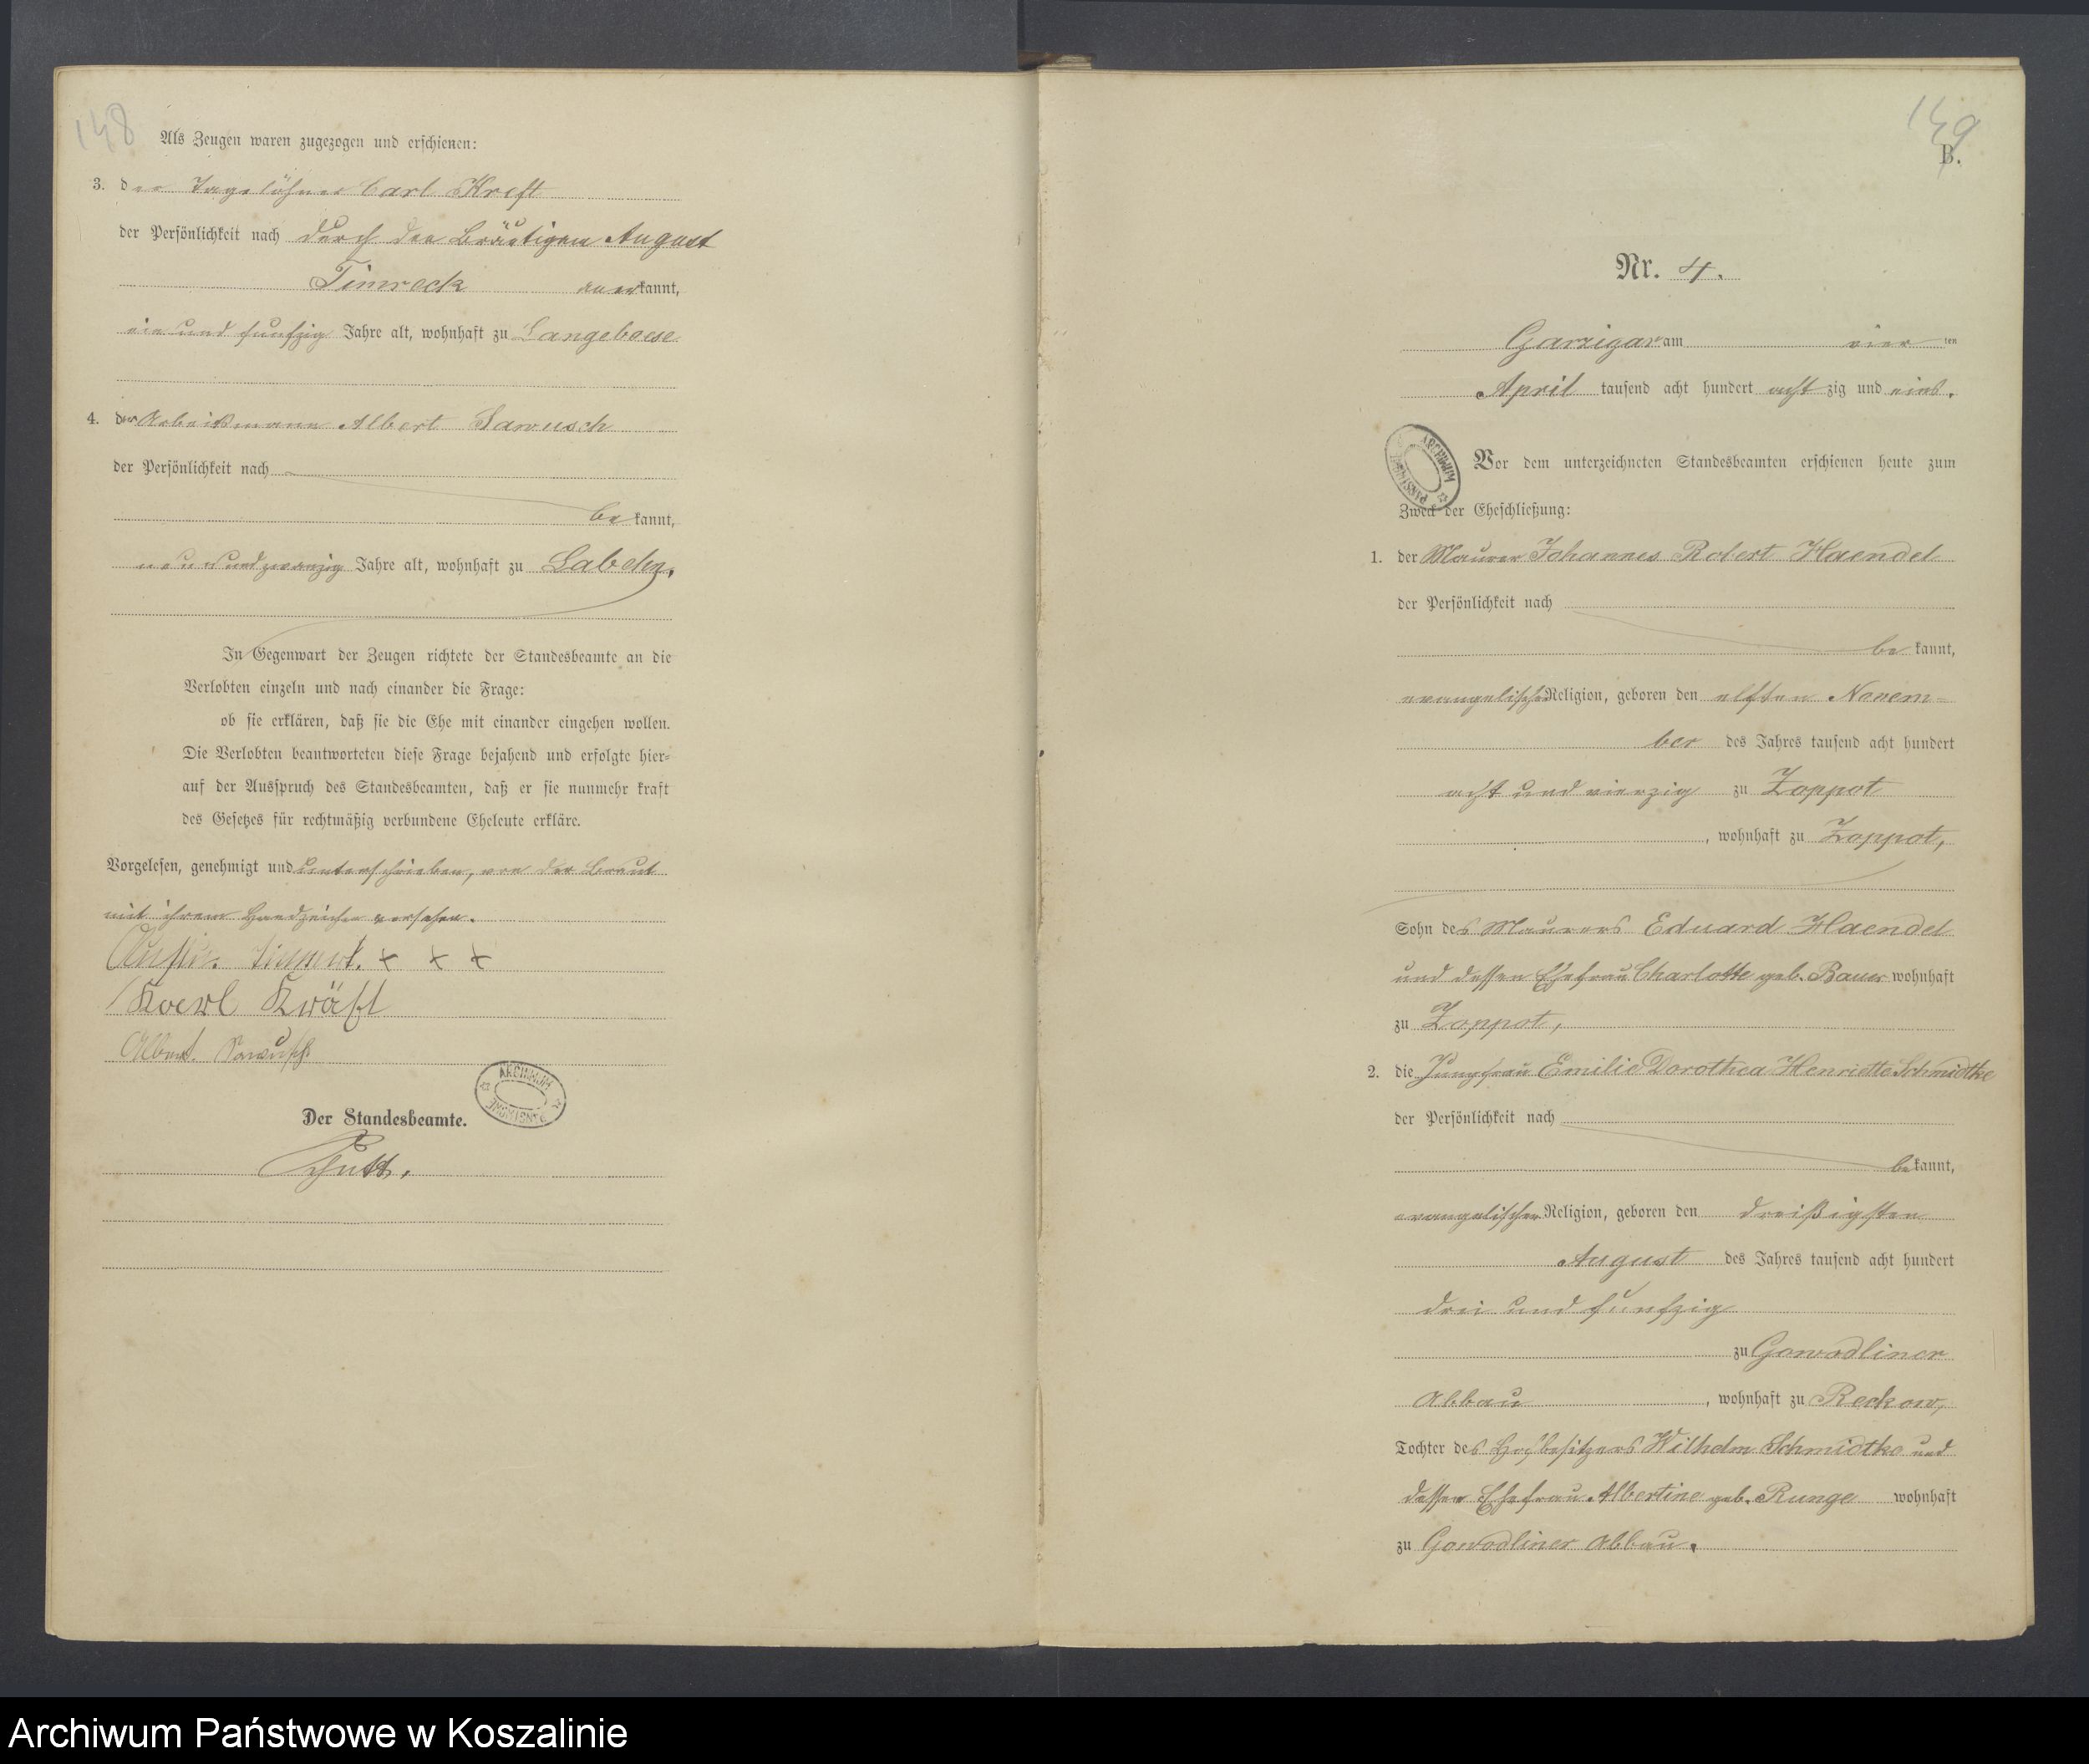 148
Als Zeugen waren zugezogen und erschienen:
3. der Tagelöhner Carl Kreft
der Persönlichkeit nach durch den Bräutigam August
Timreck anerkannt,
ein und funfzig Jahre alt, wohnhaft zu Langeboese
4. der Arbeitsmann Albert Sarousch
der Persönlichkeit nach
bekannt,
neun und zwanzig Jahre alt, wohnhaft zu Labehn,
In Gegenwart der Zeugen richtete der Standesbeamte an die
Verlobten einzeln und nach einander die Frage:
ob sie erklären, daß sie die Ehe mit einander eingehen wollen.
Die Verlobten beantworteten diese Frage bejahend und erfolgte hier-
auf der Ausspruch des Standesbeamten, daß er sie nunmehr kraft
des Gesetzes für rechtmäßig verbundene Eheleute erkläre.
Vorgelesen, genehmigt und unterschrieben, von der Braut
mit ihrem Handzeichen versehen.
+ + +
Koerl Kräft
Albert
ARCHIWUM PAŃSTWOWE
Der Standesbeamte.
149
B.
Nr. 4.
Garzigar am vierten
April tausend acht hundert achtzig und eins.
ARCHIWUM PAŃSTWOWE
Vor dem unterzeichneten Standesbeamten erschienen heute zum
Zweck der Eheschließung:
1. der Maurer Johannes Robert Haendel
der Persönlichkeit nach
bekannt,
evangelischer Religion, geboren den elften Novem-
ber des Jahres tausend acht hundert
acht und vierzig zu Zoppot
, wohnhaft zu Zoppot,
Sohn des Maurers Eduard Haendel
und dessen Ehefrau Charlotte geb. Bauer wohnhaft
zu Zoppot,
2. die Jungfrau Emilie Dorothea Henriette Schmidtke
der Persönlichkeit nach
bekannt,
evangelischer Religion, geboren den dreißigsten
August des Jahres tausend acht hundert
drei und funfzig
zu Gowodliner
Abbau , wohnhaft zu Reckow,
Tochter des Hofbesitzers Wilhelm Schmidtke und
dessen Ehefrau Albertine geb. Runge wohnhaft
zu Gowodliner Abbau.
Archiwum Państwowe w Koszalinie